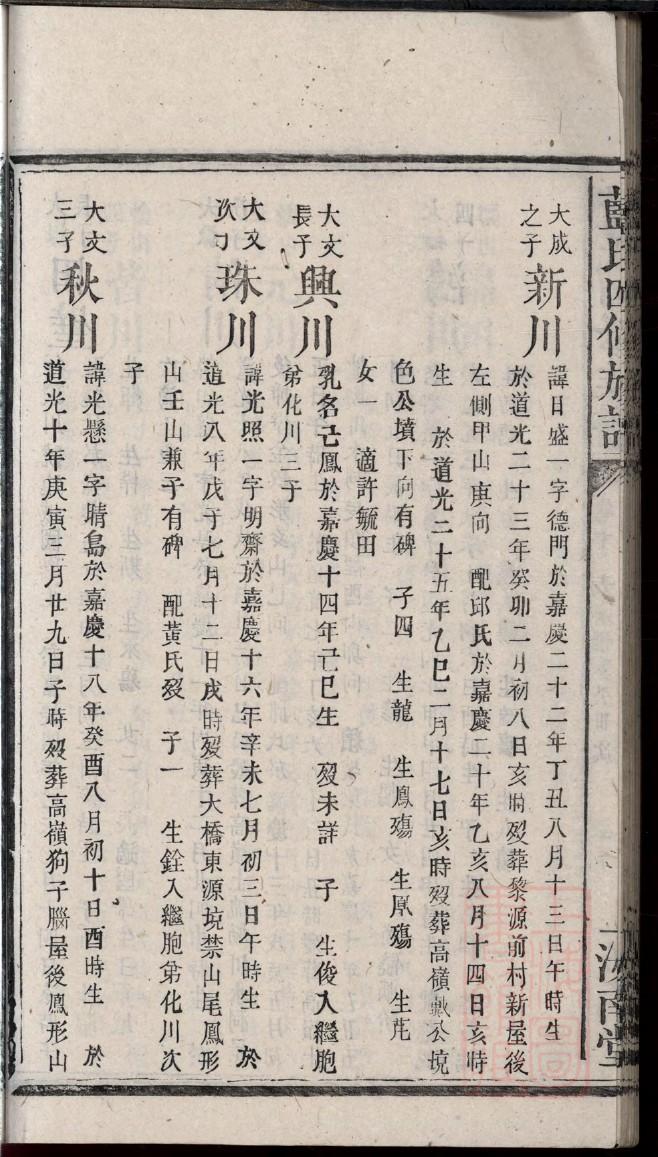 藍氏四修族譜
汝南堂
大成
之子
新川
諱日盛一字德門於嘉慶二十二年丁丑八月十三日午時生
於道光二十三年癸卯二月初八日亥時歿葬黎源前村新屋後
左側甲山庚向 配邱氏於嘉慶二十年乙亥八月十四日亥時
生 於道光二十五年乙巳二月十七日亥時歿葬高嶺 公境
色公墳下向有碑 子四 生龍 生鳳殤 生凰殤 生芘
女一 適許毓田
大文
長子
興川
乳名己鳳於嘉慶十四年己巳生 歿未詳 子 生俊入繼胞
弟化川三子
大文
次子
珠川
諱光照一字明齋於嘉慶十六年辛未七月初三日午時生 於
道光八年戊子七月十二日戌時歿葬大橋東源境禁山尾鳳形
山壬山兼子有碑 配黃氏歿 子一 生銓入繼胞弟化川次
子
大文
三子
秋川
諱光懸一字晴島於嘉慶十八年癸酉八月初十日酉時生 於
道光十年庚寅三月廿九日子時歿葬高嶺狗子腦屋後鳳形山